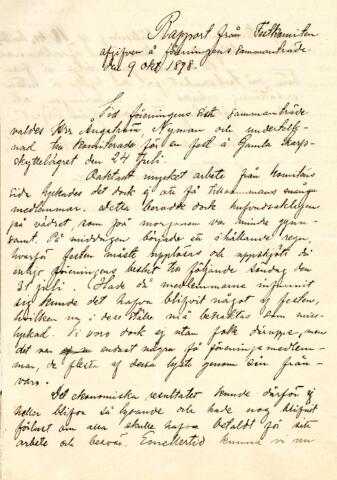 Rapport från Festkomitén
afgifven å föreningens sammanträde
den 9 Okt 1898.
Vid föreningens sist sammanträde
valdes Hrr Ångström, Nyman och underteck-
nad till komiterade för en fest å Gamla Skarp-
skyttelägret den 24 Juli.
Oaktadt mycket arbete från komiténs
sida lyckades det dock ej att få tillsammans många
medlemmar. Detta berodde dock hufvudsakligen
på vädret, som på morgonen var mindre gynn-
samt. På middagen började ett ihållande regn,
hvarför festen måste upplösas och uppskjöts den
enligt föreningens beslut till följande söndag den
31 juli. Hade då medlemmarne infunnit
sig kunde det hafva blifvit något af festen,
hvilken nu i dess ställe må betecknas som miss-
lyckad. Vi voro dock ej utan folk deruppe, men
det var endast några få föreningsmedlem-
mar, de flesta af dessa lyste genom sin från-
varo.
Det ekonomiska resultatet kunde därför ej
heller blifva så lysande och hade nog blifvit
förlust om alla skulle hafva betaldt för sitt
arbete och besvär. Emellertid kunna vi nu